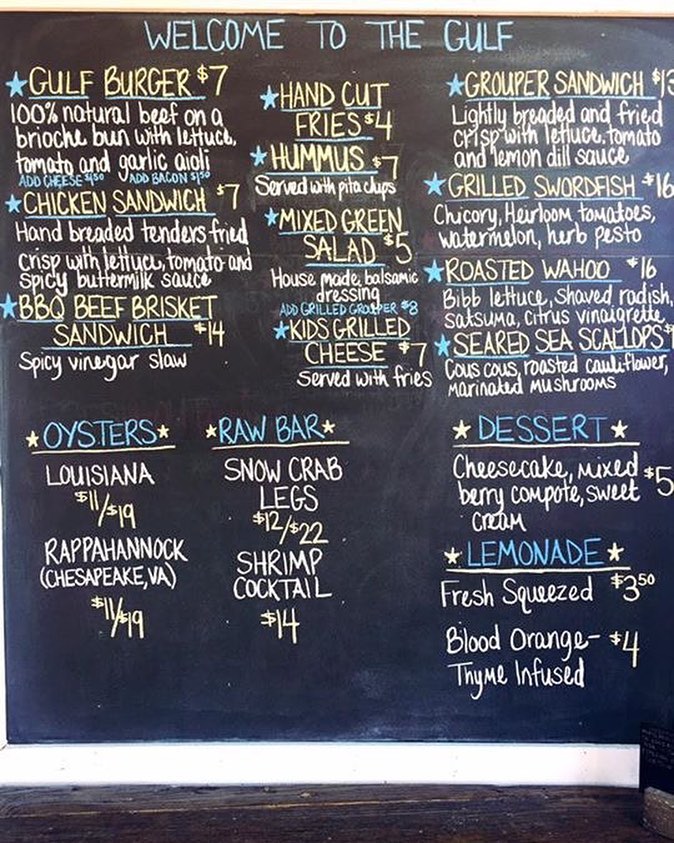 WELCOME TO THE GULF
GULF BURGER $7
100% natural beef on a
brioche bun with lettuce,
tomato and garlic aioli
ADD CHEESE $1.50 ADD BACON $1.50
CHICKEN SANDWICH $7
Hand breaded tenders fried
crisp with lettuce, tomato and
spicy buttermilk sauce
BBQ BEEF BRISKET
SANDWICH $14
Spicy vinegar slaw
HAND CUT
FRIES $4
HUMMUS $7
Served with pita chips
MIXED GREEN
SALAD $5
House made balsamic
dressing
ADD GRILLED GROUPER $8
KIDS GRILLED
CHEESE $7
Served with fries
GROUPER SANDWICH $13
Lightly breaded and fried
crisp with lettuce, tomato
and lemon dill sauce
GRILLED SWORDFISH $16
Chicory, Heirloom tomatoes,
watermelon, herb pesto
ROASTED WAHOO $16
Bibb lettuce, Shaved radish,
Satsuma, citrus vinaigrette
SEARED SEA SCALLOPS
Cous cous, roasted cauliflower,
marinated mushrooms
OYSTERS
LOUISIANA
$11/$19
RAPPAHANNOCK
(CHESAPEAKE, VA)
$11/$19
RAW BAR
SNOW CRAB
LEGS
$12/$22
SHRIMP
COCKTAIL
$14
DESSERT
Cheesecake, mixed
berry compote, sweet
cream
$5
LEMONADE
Fresh Squeezed $3.50
Blood Orange- $4
Thyme Infused